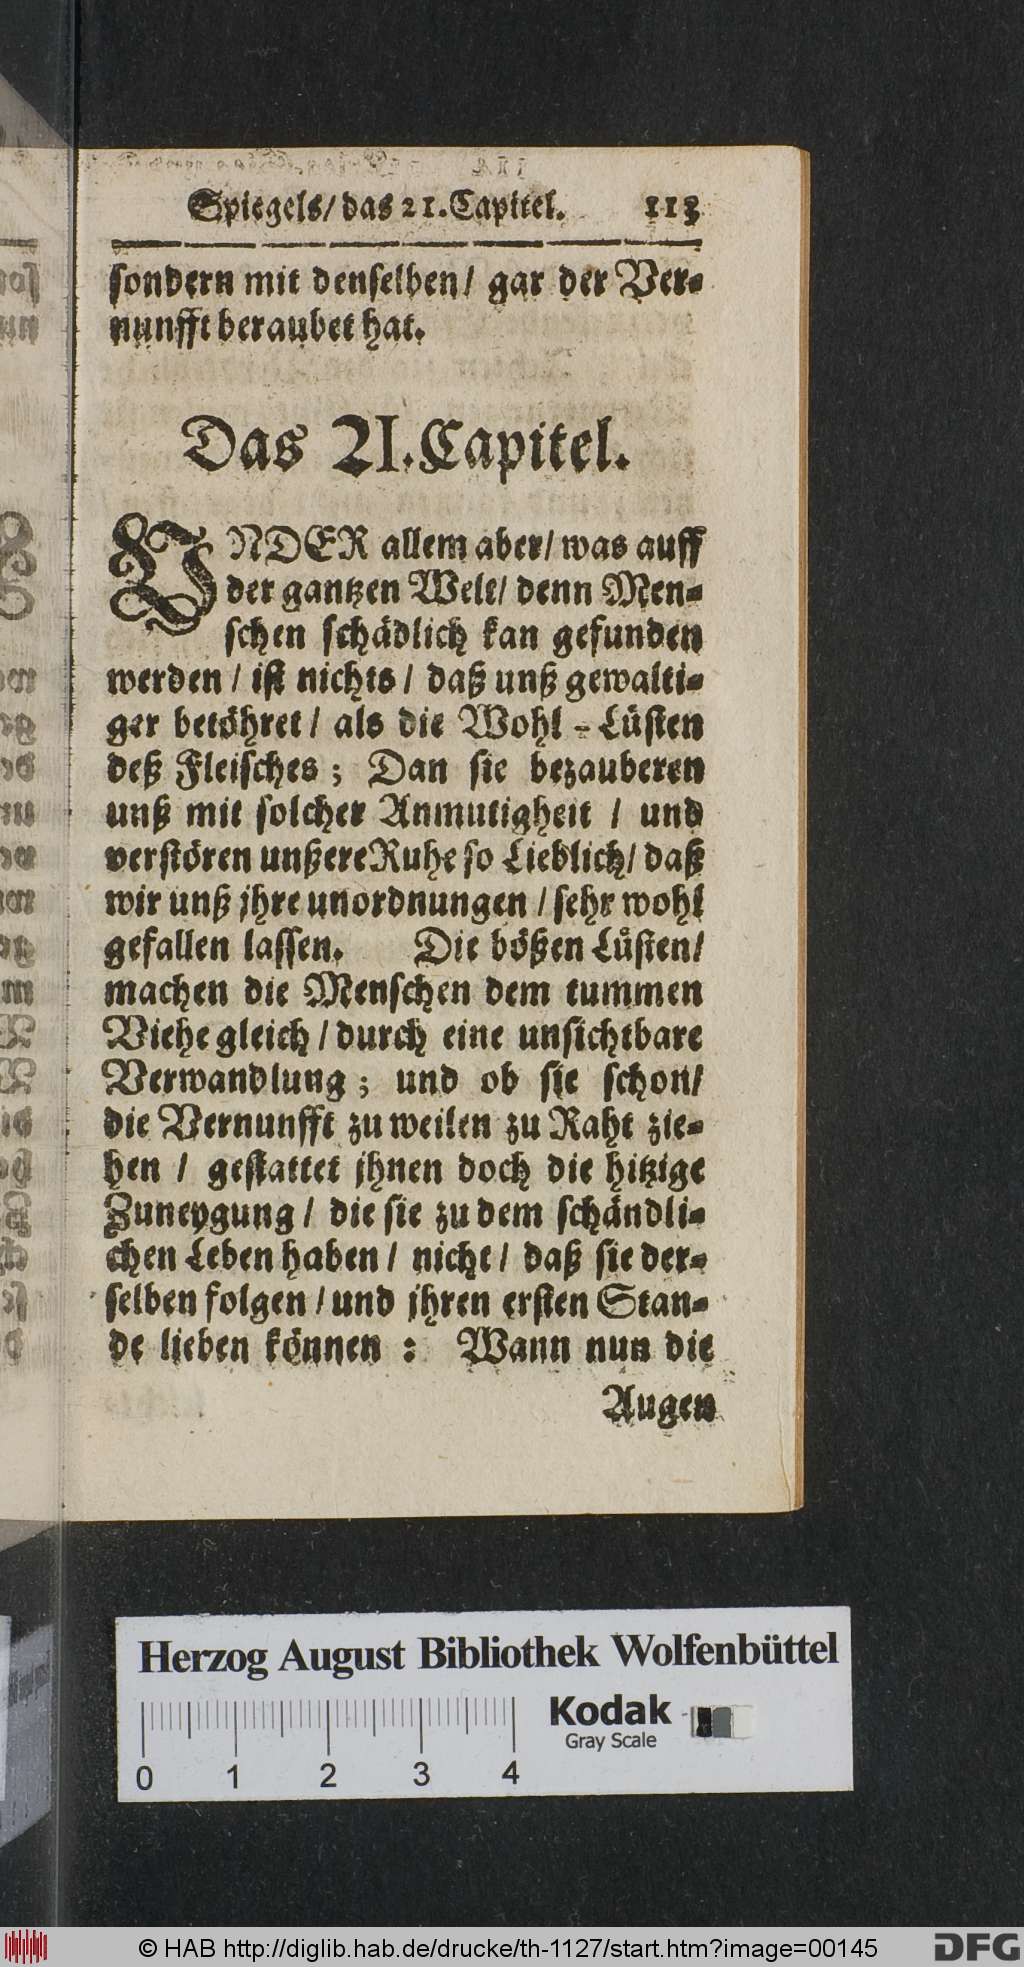 Spiegels/ das 21. Capitel. 113
sondern mit denselben/ gar der Ver-
nunfft beraubet hat.
Das 21. Capitel.
VNDER allem aber/ was auff
der gantzen Welt/ denn Men-
schen schädlich kan gefunden
werden / ist nichts / daß unß gewalti-
ger betöhret / als die Wohl-Lüsten
deß Fleisches ; Dan sie bezauberen
unß mit solcher Anmutigheit / und
verstören unßere Ruhe so Lieblich/ daß
wir unß jhre unordnungen / sehr wohl
gefallen lassen. Die bößen Lüsten/
machen die Menschen dem tummen
Viehe gleich / durch eine unsichtbare
Verwandlung ; und ob sie schon/
die Vernunfft zu weilen zu Raht zie-
hen / gestattet jhnen doch die hitzige
Zuneygung / die sie zu dem schändli-
chen Leben haben / nicht / daß sie der-
selben folgen / und jhren ersten Stan-
de lieben können : Wann nun die
Augen
Herzog August Bibliothek Wolfenbüttel
Kodak
Gray Scale
0 1 2 3 4
© HAB http://diglib.hab.de/drucke/th-1127/start.htm?image=00145
DFG